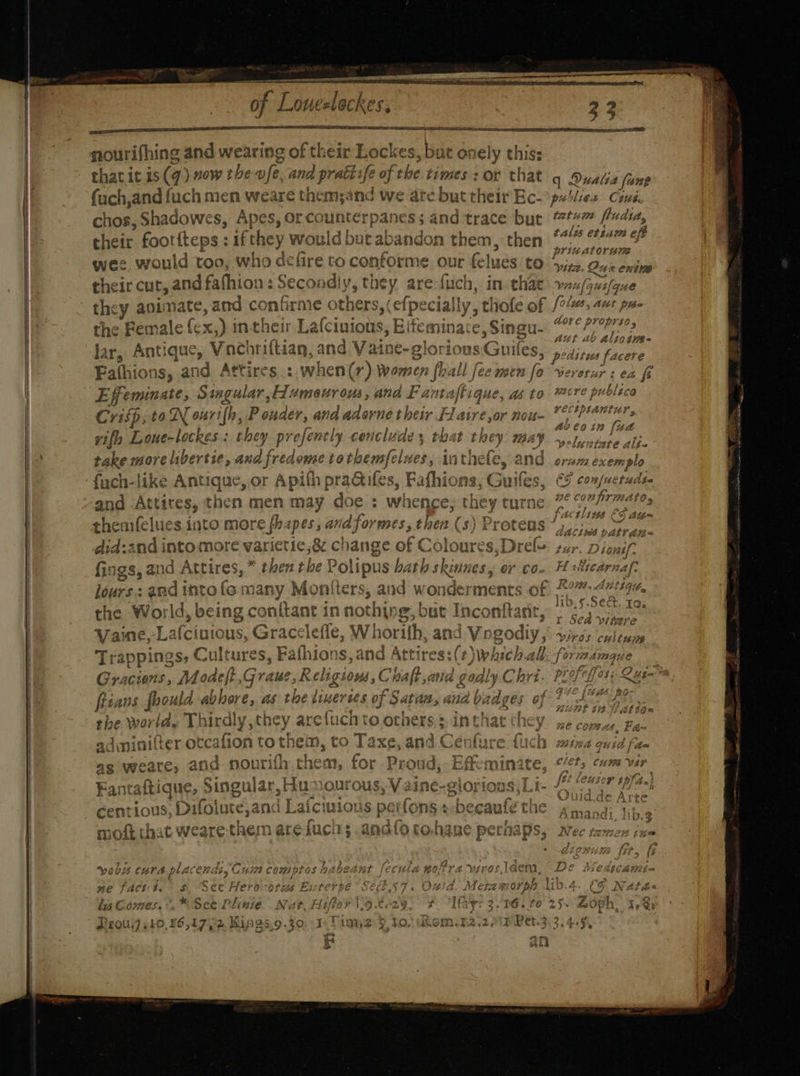 of Loue-lockes.
33
nourishing and wearing of their Lockes, but onely this:
that it is (q) now the vse, and practise of the times : or that
such, and such men weare them; and we are but their Ec-
chos, Shadowes, Apes, or counterpanes; and trace but
their footsteps : if they would but abandon them, then
wee would too, who desire to conforme our selues to
their cut, and fashion : Secondly, they are such, in that
they animate, and confirme others, (especially, those of
the Female sex,) in their Lasciuious, Effeminate, Singu-
lar, Antique, Vnchristian, and Vaine-glorious Guises,
Fashions, and Attires : when (r) Women shall see men so
Effeminate, Singular, Humourous, and Fantastique, as to
Crisp, to Nourish, Pouder, and adorne their Haire, or nou-
rish Loue-lockes : they presently conclude, that they may
take more libertie, and fredome to themselues, in these, and
such-like Antique, or Apish practises, Fashions, Guises,
and Attires, then men may doe : whence, they turne
themselues into more shapes, and formes, then (s) Proteus
did: and into more varietie, & change of Coloures, Dres-
sings, and Attires, * then the Polipus hath skinnes, or co-
lours : and into so many Monsters, and wonderments of
the World, being constant in nothing, but Inconstant,
Vaine, Lasciuious, Gracelesse, Whorish, and Vngodly,
Trappings, Cultures, Fashions, and Attires: (t) which all
Gracious, Modest, Graue, Religious, Chast, and godly Chri-
stians should abhore, as the liueries of Satan, and badges of
the world. Thirdly, they are such to others; in that they
administer occasion to them, to Taxe, and Censure such
as weare, and nourish them, for Proud, Effeminate,
Fantastique, Singular, Humourous, Vaine-glorious, Li-
centious, Disolute, and Lasciuious persons : because the
most that weare them are such; and so to haue perhaps,
q Qualia sunt
publica Ciui.
tatum studia,
tales etiam est
priuatorum
vita. Quæ enim
vnusquisque
solus, aut pu-
dore proprio,
aut ab alio im-
peditus facere
veretur : ea si
iure publico
recipiantur,
ab eo in sua
voluntate ali-
orum exemplo
& consuetudi-
ne confirmato,
facilius & au-
dacius patran-
tur. Dionis.
Halicarnas.
Rom. Antiqu.
lib. 5. Sect. 10.
r Sed vitare
viros cultum
formamque
professos; Qui-
que suas po-
nunt in statione
comas, Fæ-
mina quid fa-
ciet, cum vir
sit leuior ipsa?
Ouid. de Arte
Amandi, lib. 3
Nec tamen in-
dignum sit, si
vobis cura placendi, Cum comptos habeant secula nostra viros, Idem, De Medicami-
ne faciei. s See Herodotus Euterpe Sect. 57. Ouid. Metamorph lib. 4. & Nata-
lis Comes. * See Plinie Nat. Histor l. 9. c. 29. t Isay: 3. 16. to 25. Zoph. 1. 8.
Prou. 7. 10, 16, 17, 2 Kings, 9. 30. 1 Tim. 2. 9, 10. Rom. 12. 2. 1 Pet. 3. 3. 4. 5.
F
an